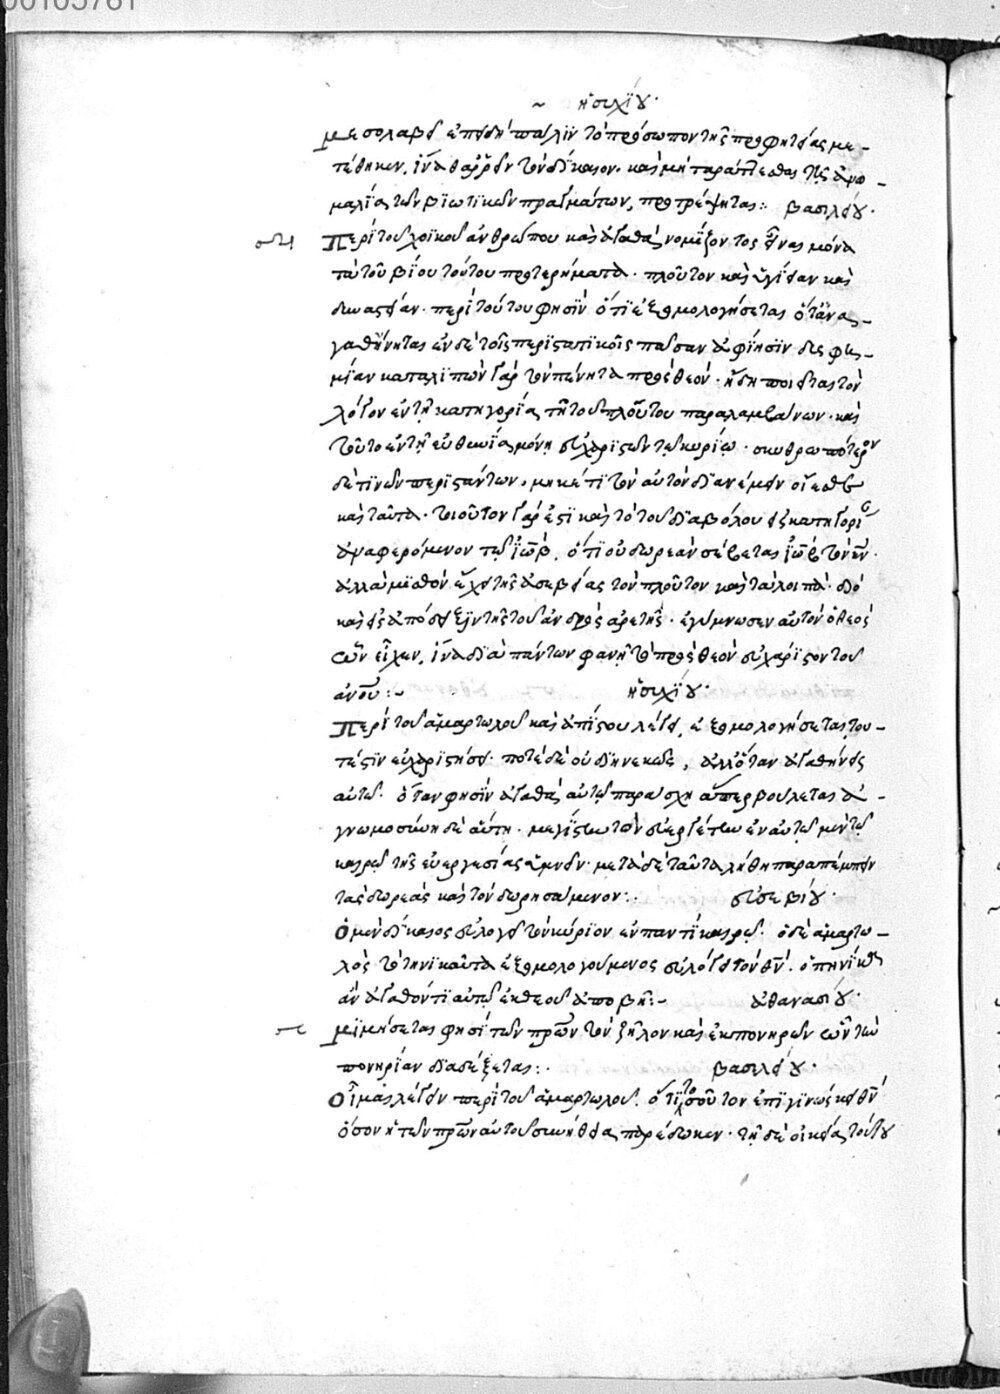 00105781
~ ἡσυχίου·
μεσολαβεῖ ἐπειδὴ πάλιν τὸ πρόσωπον τῆς προφητείας με-
τέθηκεν, ἵνα θαρρεῖν τὸν δίκαιον· καὶ μὴ ταράττεσθαι τῆς ἀνω-
μαλίας τῶν βιωτικῶν πραγμάτων, προτρέψηται: βασιλείου·
Περὶ τοῦ χοϊκοῦ ἀνθρώπου καὶ ἀγαθὰ νομίζοντος εἶναι μόνα
τὰ τοῦ βίου τούτου προτερήματα· πλοῦτον καὶ ὑγίειαν καὶ
δυναστείαν· περὶ τούτου φησὶν ὅτι ἐξομολογήσεται ὅταν ἀ-
γαθύνηται ἐν δὲ τοῖς περιστατικοῖς πᾶσαν ἀφίησιν δυσφη-
μίαν καταλιπὼν γὰρ τὸν πένητα πρὸς θεόν· ἤδη ποιεῖται τὸν
λόγον ἐν τῇ κατηγορίᾳ τῇ τοῦ πλούτου παραλαμβάνων· καὶ
τοῦτο ἐν τῇ εὐθηνίᾳ μόνῃ εὐχαριστῶν τῷ κυρίῳ· σκυθρωπότερον
δέ τινων περιστάντων, μηκέτι τὸν αὐτὸν διανέμειν
καὶ ταῦτα· τοιοῦτον γάρ ἐστι καὶ τὸ τοῦ διαβόλου
ἀναφερόμενον τῷ ἰώβ, ὅτι οὐ δωρεὰν σέβεται ἰὼβ τὸν θν·
ἀλλὰ μισθὸν ἔχει τῆς εὐσεβείας τὸν πλοῦτον καὶ τὰ λοιπά· διὸ
καὶ εἰς ἀπόδειξιν τῆς τοῦ ἀνδρὸς ἀρετῆς· ἐγύμνωσεν αὐτὸν ὁ θεὸς
ὧν εἶχεν, ἵνα διὰ πάντων φανῇ τὸ πρὸς θεὸν εὐχάριστον τοῦ
ἀνου:- ἡσυχίου·
Περὶ τοῦ ἁμαρτωλοῦ καὶ ἀπίστου λέγει, ἐξομολογήσεται του-
τέστιν εὐχαριστήσει· ποτὲ δὲ οὐ διηνεκῶς, ἀλλ' ὅταν ἀγαθύνῃς
αὐτῷ· ὅταν φησὶν ἀγαθὰ αὐτῷ παράσχῃ ἅπερ βούλεται ἀ-
γνωμοσύνη δὲ αὕτη· μεγίστη τὸν εὐεργέτην ἐν αὐτῷ μὲν τῷ
καιρῷ τῆς εὐεργεσίας ὑμνεῖν· μετὰ δὲ ταῦτα λήθῃ παραπέμπειν
τὰς δωρεὰς καὶ τὸν δωρησάμενον: εὐσεβίου·
Ὁ μὲν δίκαιος εὐλογεῖ τὸν κύριον ἐν παντὶ καιρῷ· ὁ δὲ ἁμαρτω-
λὸς τὸ τηνικαῦτα ἐξομολογούμενος εὐλογεῖ τὸν θν· ὁπηνίκα
ἂν ἀγαθόν τι αὐτῷ ἐκ θεοῦ ἀποβῇ:- ἀθανασίου·
μιμήσεται φησὶ τῶν πρων τὸν ζῆλον καὶ ἐκ πονηρῶν ὢν τὴν
πονηρίαν διαδέξεται: βασιλείου·
Οἶμαι λέγειν περὶ τοῦ ἁμαρτωλοῦ· ὅτι τοσοῦτον ἐπιγινώσκει θν
ὅσον ἡ τῶν πρων αὐτοῦ συνήθεια παρέδωκεν· τῇ δὲ οἰκείᾳ τούτου